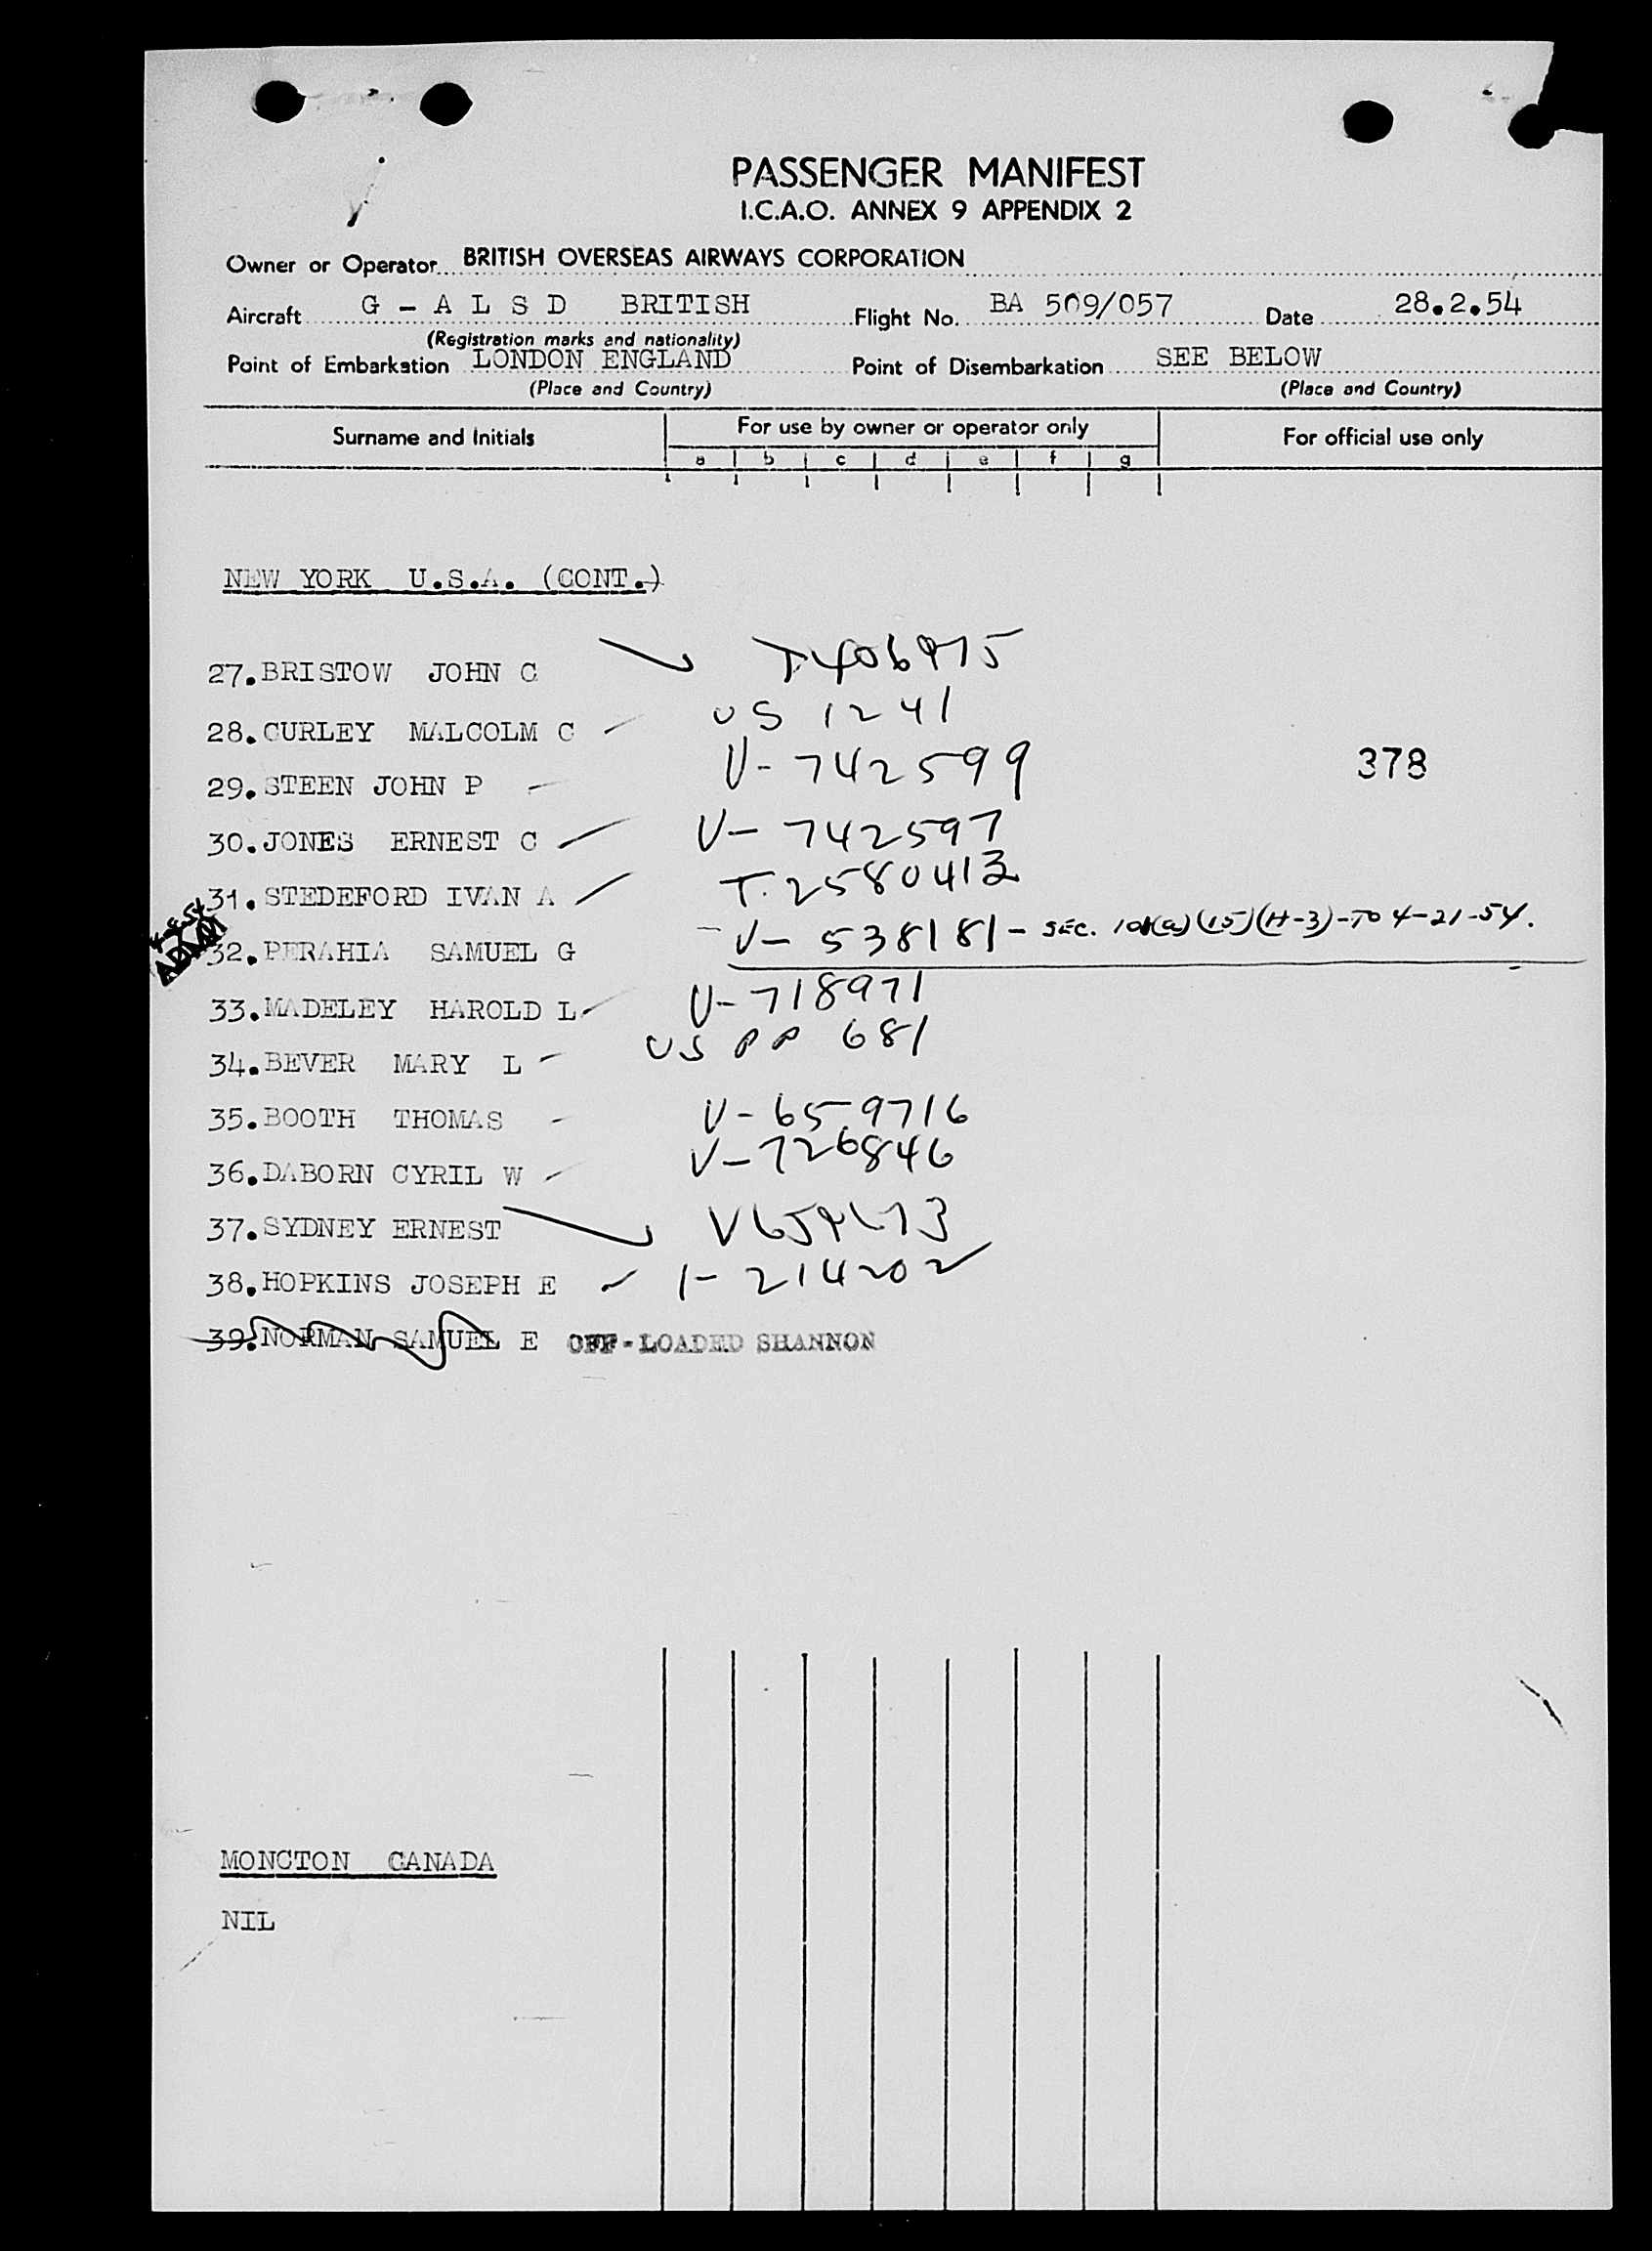 PASSENGER MANIFEST
I.C.A.O. ANNEX 9 APPENDIX 2
Owner or Operator BRITISH OVERSEAS AIRWAYS CORPORATION
Aircraft G - A L S D BRITISH Flight No. BA 509/057 Date 28.2.54
(Registration marks and nationality)
Point of Embarkation LONDON ENGLAND Point of Disembarkation SEE BELOW
(Place and Country) (Place and Country)
Surname and Initials For use by owner or operator only For official use only
a b c d e f g
NEW YORK U.S.A. (CONT.)
27. BRISTOW JOHN C T406975
28. CURLEY MALCOLM C US 1241
29. STEEN JOHN P V-742599 378
30. JONES ERNEST C V-742597
31. STEDEFORD IVAN A T.2580413
32. PERAHIA SAMUEL G V-538181 - SEC. 101(a)(15)(H-3)-TO 4-21-54.
33. MADELEY HAROLD L V-718971
34. BEVER MARY L US PP 681
35. BOOTH THOMAS V-659716
36. DABORN CYRIL W V-726846
37. SYDNEY ERNEST
38. HOPKINS JOSEPH E 1-214202
39. NORMAN SAMUEL E OFF-LOADED SHANNON
MONCTON CANADA
NIL